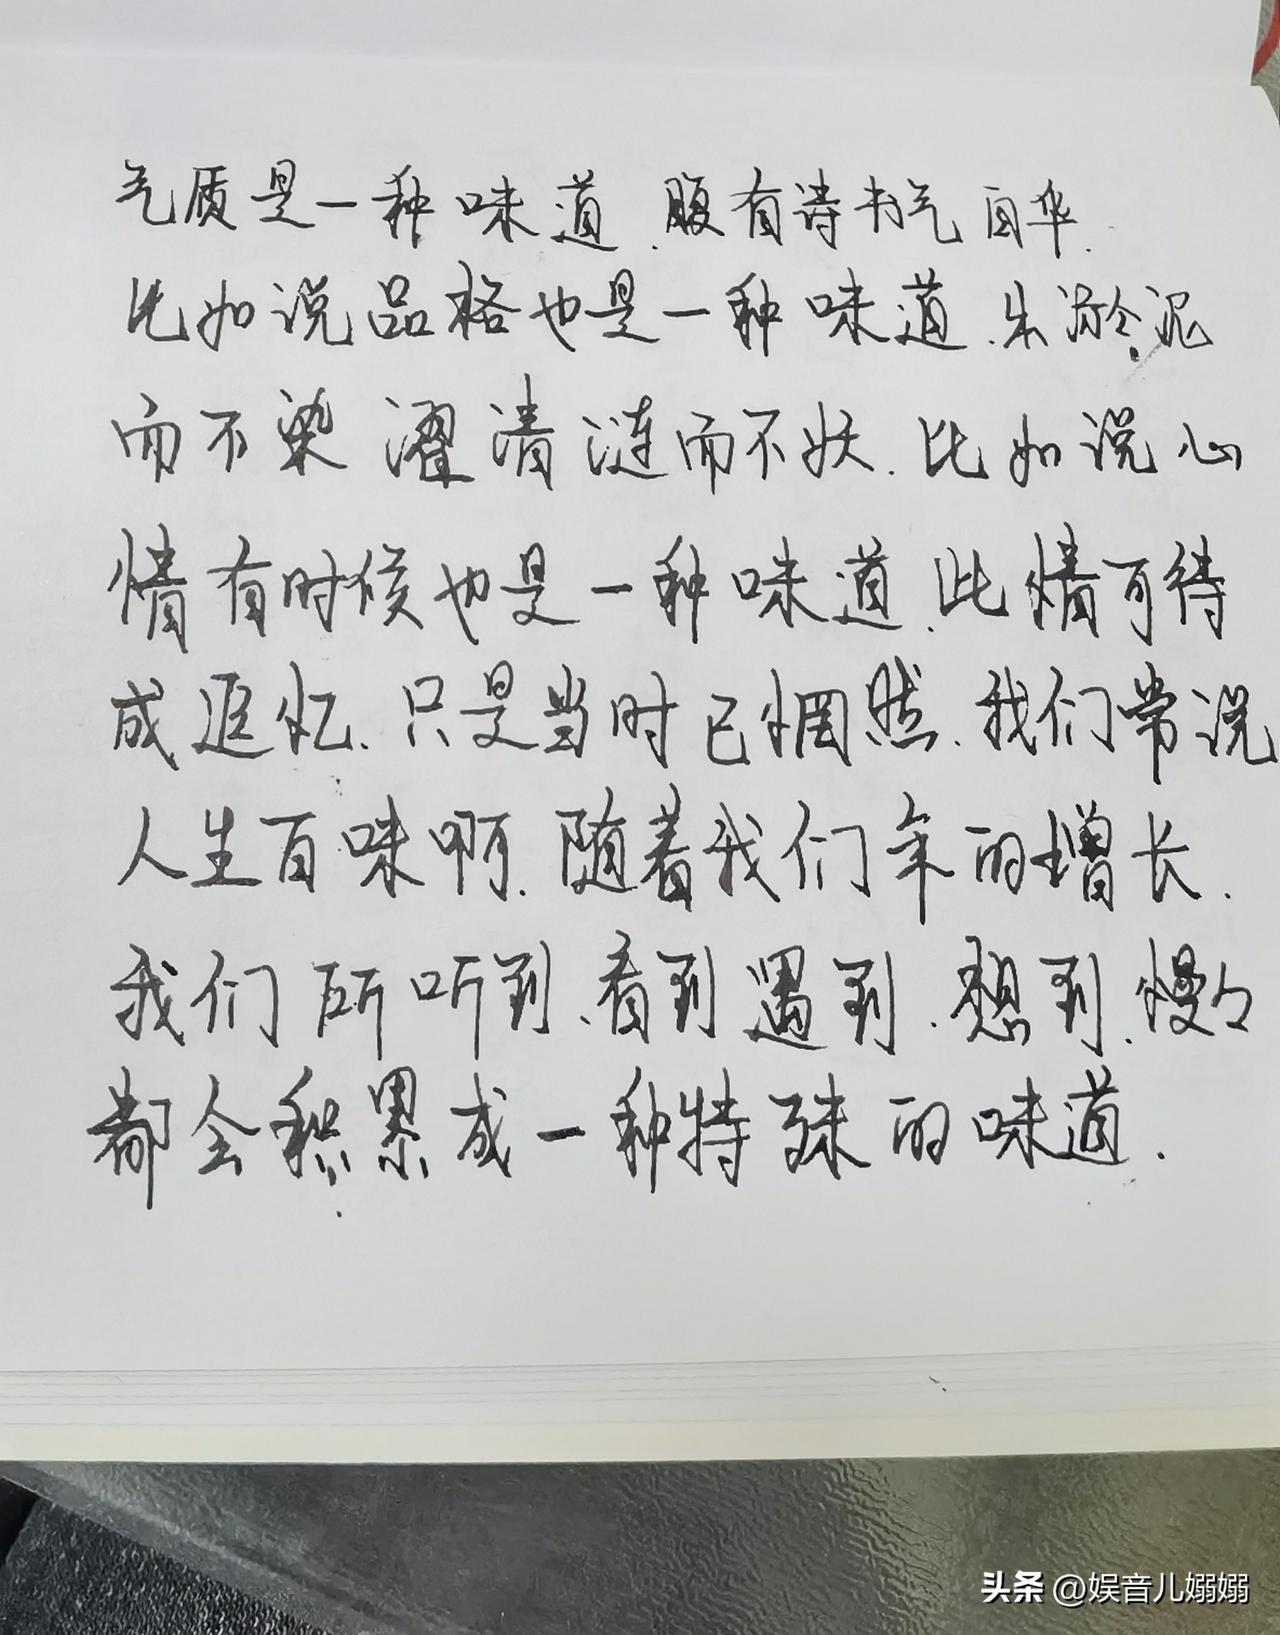 气质是一种味道.腹有诗书气自华.
比如说品格也是一种味道.出淤泥
而不染 濯清涟而不妖.比如说心
情有时候也是一种味道.此情可待
成追忆.只是当时已惘然.我们常说
人生百味啊.随着我们年的增长.
我们所听到.看到遇到.想到.慢々
都会积累成一种特殊的味道.
头条 @娱音儿嫋嫋